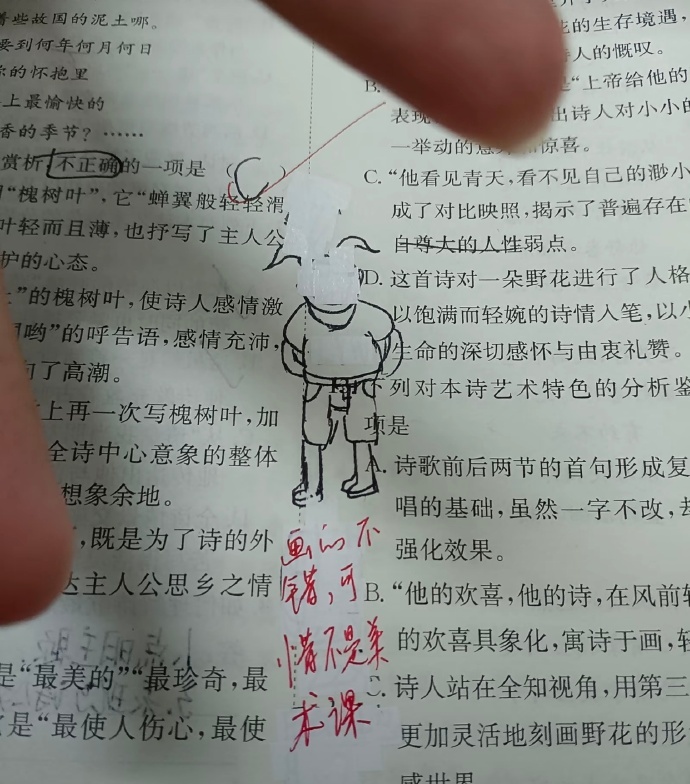 着些故国的泥土哪。
要到何年何月何日
你的怀抱里
上最愉快的
香的季节？……
赏析不正确的一项是（C）
“槐树叶”，它“蝉翼般轻轻滑
叶轻而且薄，也抒写了主人公
护的心态。
”的槐树叶，使诗人感情激
哟”的呼告语，感情充沛，
了高潮。
上再一次写槐树叶，加
全诗中心意象的整体
想象余地。
，既是为了诗的外
达主人公思乡之情
是“最美的”“最珍奇，最
是“最使人伤心，最使
画的不
错，可
惜不是美
术课
的生存境遇，
诗人的慨叹。
B.
“上帝给他的
表现
出诗人对小小的
一举动的意外
惊喜。
C. “他看见青天，看不见自己的渺小
成了对比映照，揭示了普遍存在
自尊大的人性弱点。
D. 这首诗对一朵野花进行了人格
以饱满而轻婉的诗情入笔，以小
生命的深切感怀与由衷礼赞。
下列对本诗艺术特色的分析鉴
项是
A. 诗歌前后两节的首句形成复
唱的基础，虽然一字不改，却
强化效果。
B. “他的欢喜，他的诗，在风前轻
的欢喜具象化，寓诗于画，轻
C. 诗人站在全知视角，用第三
更加灵活地刻画野花的形
感世界